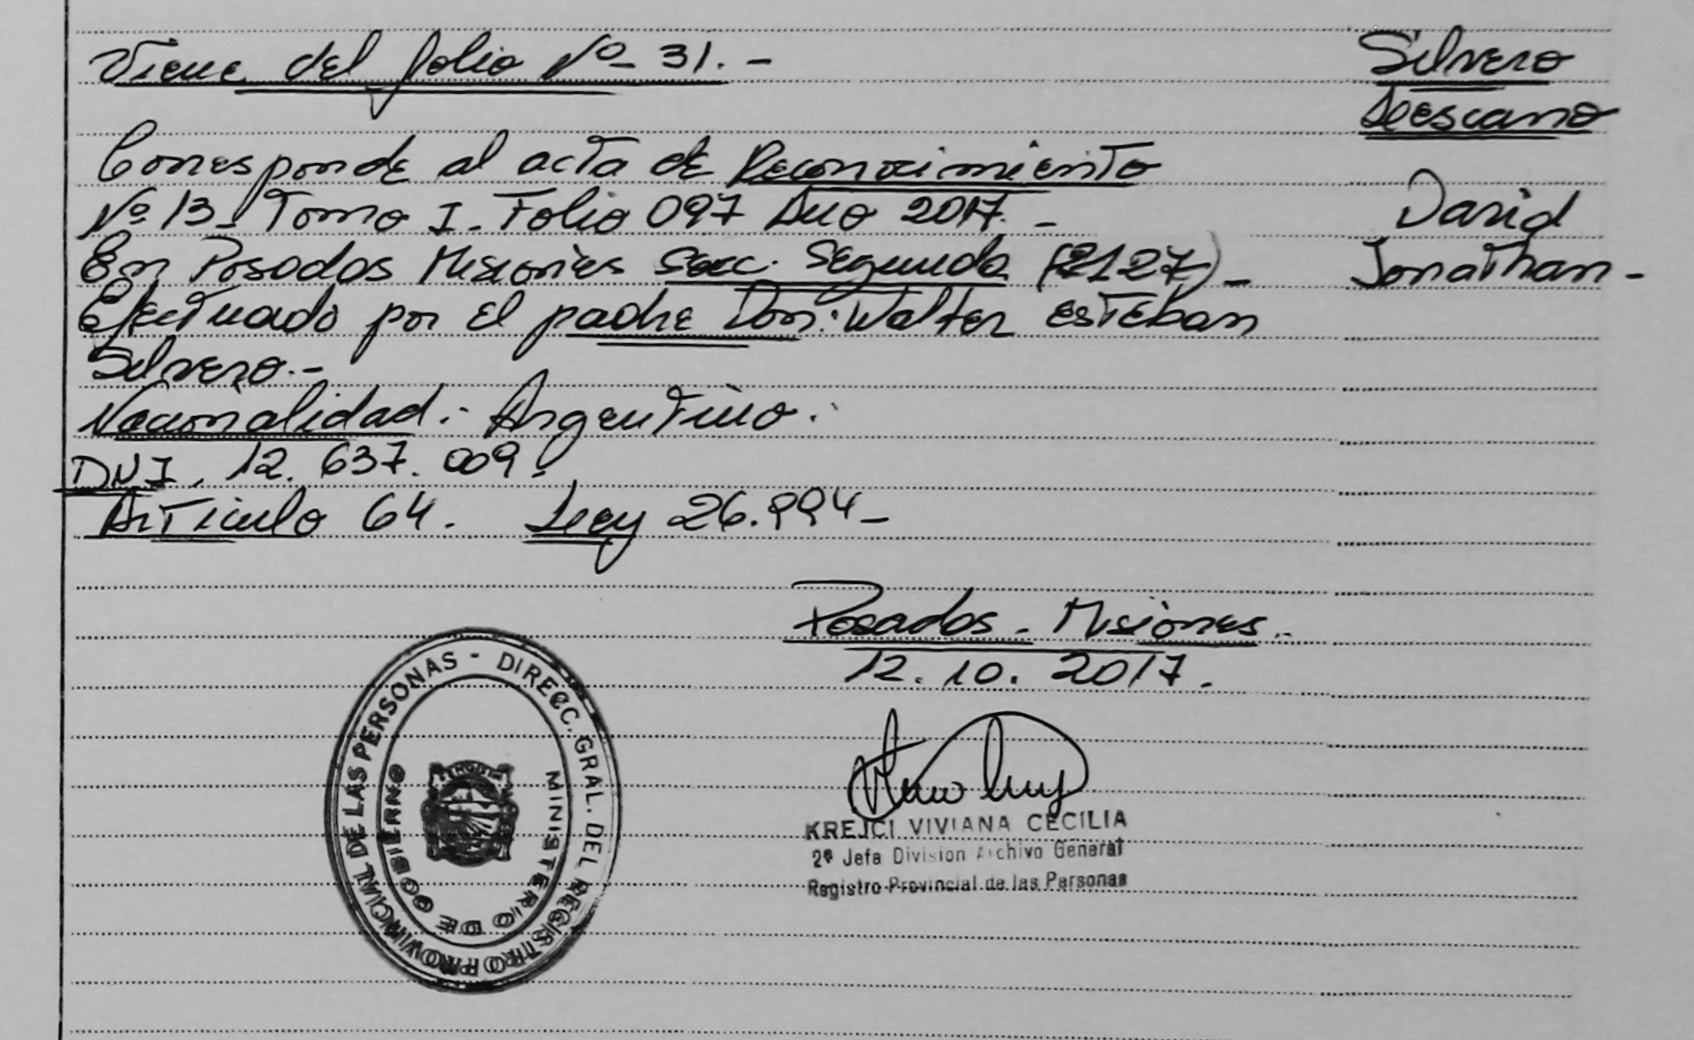 Viene del folio Nº 31.-
Corresponde al acta de Reconocimiento
Nº 13 - Tomo I. Folio 097 Año 2017. -
En Posadas Misiones Secc. Segunda (2127) -
Efectuado por el padre Don: Walter Esteban
Silvero.-
Nacionalidad: Argentino.
DNI. 12.637.009.
Artículo 64. Ley 26.994 -
Posadas - Misiones.
12.10.2017.
Silvero
Lescano
David
Jonathan -
DIRECC. GRAL. DEL REGISTRO PROVINCIAL DE LAS PERSONAS -
MINISTERIO DE GOBIERNO
KREJCI VIVIANA CECILIA
2º Jefa Division Archivo General
Registro Provincial de las Personas